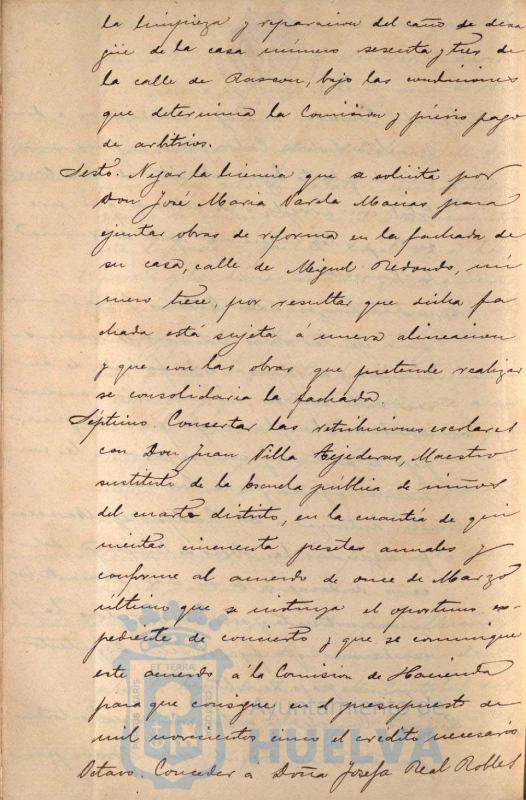 la limpieza y reparacion del caño de desa
güe de la casa número sesenta y tres de
la calle de Rascon, bajo las condiciones
que determina la Comision y prévio pago
de arbitrios.
Sesto. Negar la licencia que se solicita por
Don José Maria Varela Macias para
ejecutar obras de reforma en la fachada de
su casa, calle de Miguel Redondo, nú
mero trece, por resultar que dicha fa
chada está sujeta á nueva alineacion
y que con las obras que pretende realizar
se consolidaria la fachada.
Séptimo. Concertar las retribuciones escolares
con Don Juan Villa Tejederas, Maestro
sustituto de la Escuela pública de niños
del cuarto distrito, en la cuantía de qui
nientas cincuenta pesetas anuales y
conforme al acuerdo de once de Marzo
último que se instruya el oportuno es
pediente de concierto y que se comunique
este acuerdo á la Comision de Hacienda
para que consigne en el presupuesto de
mil novecientos cinco el credito necesario
Octavo. Conceder á Doña Josefa Real Robles
PORTUS MARIS ET TERRAE CUSTODIA
Ayuntamiento de
HUELVA